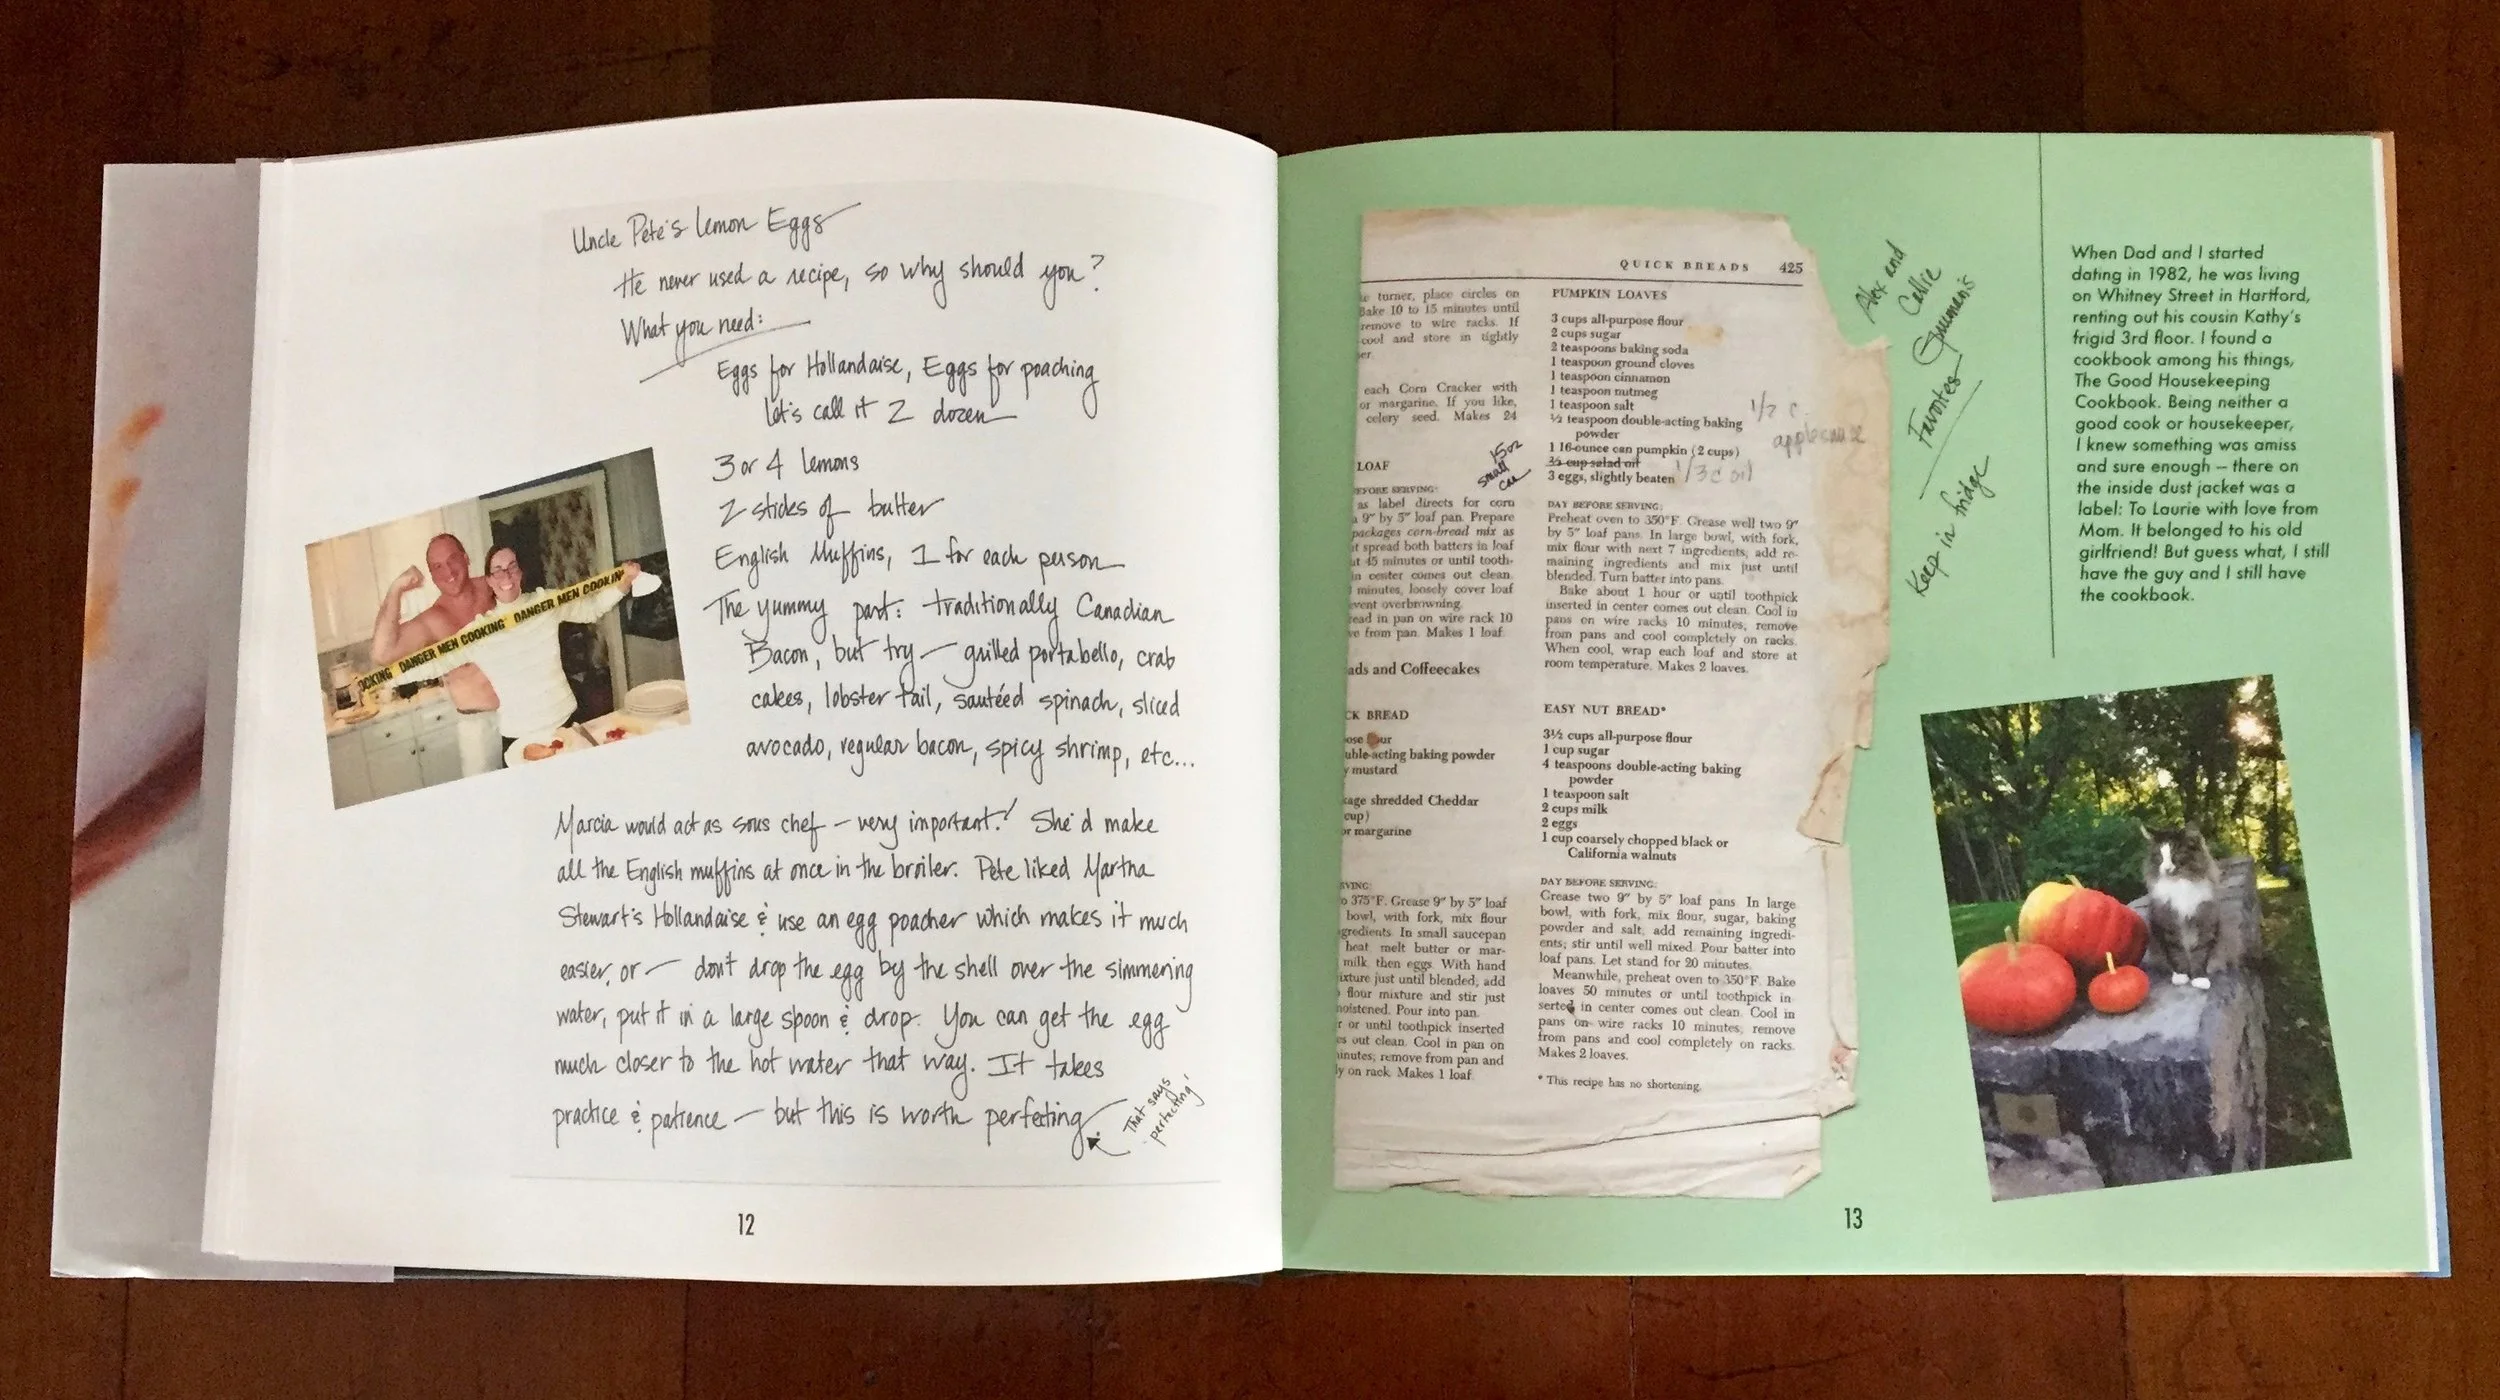 Uncle Pete's Lemon Eggs
He never used a recipe, so why should you?
What you need:
Eggs for Hollandaise, Eggs for poaching
Let's call it 2 dozen
3 or 4 lemons
2 sticks of butter
English Muffins, 1 for each person
The yummy part: traditionally Canadian
Bacon, but try — grilled portabello, crab
cakes, lobster tail, sautéed spinach, sliced
avocado, regular bacon, spicy shrimp, etc...
OCKING DANGER MEN COOKING DANGER MEN COOKIN
Marcia would act as sous chef — very important! She'd make
all the English muffins at once in the broiler. Pete liked Martha
Stewart's Hollandaise & use an egg poacher which makes it much
easier, or — don't drop the egg by the shell over the simmering
water, put it in a large spoon & drop. You can get the egg
much closer to the hot water that way. It takes
practice & patience — but this is worth perfecting
That says
perfecting!
12
QUICK BREADS 425
e turner, place circles on
Bake 10 to 15 minutes until
remove to wire racks. If
cool and store in tightly
er.
each Corn Cracker with
or margarine. If you like,
celery seed. Makes 24
LOAF
EFORE SERVING:
as label directs for corn
a 9" by 5" loaf pan. Prepare
packages corn-bread mix as
t spread both batters in loaf
at 45 minutes or until tooth-
in center comes out clean.
minutes, loosely cover loaf
event overbrowning.
read in pan on wire rack 10
ve from pan. Makes 1 loaf.
ads and Coffeecakes
CK BREAD
ose flour
uble-acting baking powder
y mustard
kage shredded Cheddar
cup)
or margarine
VING:
o 375°F. Grease 9" by 5" loaf
bowl, with fork, mix flour
gredients. In small saucepan
heat melt butter or mar-
milk, then eggs. With hand
ixture just until blended; add
flour mixture and stir just
moistened. Pour into pan.
r or until toothpick inserted
es out clean. Cool in pan on
inutes; remove from pan and
y on rack. Makes 1 loaf.
PUMPKIN LOAVES
3 cups all-purpose flour
2 cups sugar
2 teaspoons baking soda
1 teaspoon ground cloves
1 teaspoon cinnamon
1 teaspoon nutmeg
1 teaspoon salt
½ teaspoon double-acting baking
powder
1 16-ounce can pumpkin (2 cups)
⅔ cup salad oil
3 eggs, slightly beaten
1/2 c.
applesauce
1/3 c oil
15oz
small
can
DAY BEFORE SERVING:
Preheat oven to 350°F. Grease well two 9"
by 5" loaf pans. In large bowl, with fork,
mix flour with next 7 ingredients, add re-
maining ingredients and mix just until
blended. Turn batter into pans.
Bake about 1 hour or until toothpick
inserted in center comes out clean. Cool in
pans on wire racks 10 minutes, remove
from pans and cool completely on racks.
When cool, wrap each loaf and store at
room temperature. Makes 2 loaves.
EASY NUT BREAD*
3½ cups all-purpose flour
1 cup sugar
4 teaspoons double-acting baking
powder
1 teaspoon salt
2 cups milk
2 eggs
1 cup coarsely chopped black or
California walnuts
DAY BEFORE SERVING:
Grease two 9" by 5" loaf pans. In large
bowl, with fork, mix flour, sugar, baking
powder and salt, add remaining ingredi-
ents; stir until well mixed. Pour batter into
loaf pans. Let stand for 20 minutes.
Meanwhile, preheat oven to 350°F. Bake
loaves 50 minutes or until toothpick in
serted in center comes out clean. Cool in
pans on wire racks 10 minutes, remove
from pans and cool completely on racks.
Makes 2 loaves.
* This recipe has no shortening.
Alex and
Callie
Favorites
Keep in fridge
When Dad and I started
dating in 1982, he was living
on Whitney Street in Hartford,
renting out his cousin Kathy's
frigid 3rd floor. I found a
cookbook among his things,
The Good Housekeeping
Cookbook. Being neither a
good cook or housekeeper,
I knew something was amiss
and sure enough – there on
the inside dust jacket was a
label: To Laurie with love from
Mom. It belonged to his old
girlfriend! But guess what, I still
have the guy and I still have
the cookbook.
13